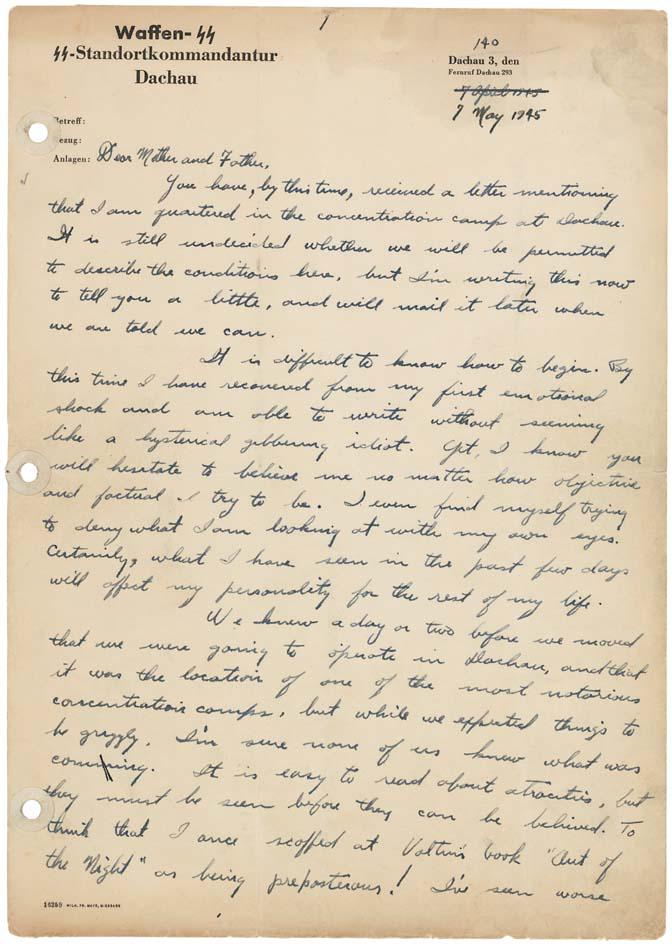 1
Waffen-SS
SS-Standortkommandantur
Dachau
140
Dachau 3, den
Fernruf Dachau 293
7 April 1945
7 May 1945
Betreff:
Bezug:
Anlagen:
Dear Mother and Father,
You have, by this time, received a letter mentioning
that I am quartered in the concentration camp at Dachau.
It is still undecided whether we will be permitted
to describe the conditions here, but I'm writing this now
to tell you a little, and will mail it later when
we are told we can.
It is difficult to know how to begin. By
this time I have recovered from my first emotional
shock and am able to write without seeming
like a hysterical gibbering idiot. Yet, I know you
will hesitate to believe me no matter how objective
and factual I try to be. I even find myself trying
to deny what I am looking at with my own eyes.
Certainly, what I have seen in the past few days
will affect my personality for the rest of my life.
We knew a day or two before we moved
that we were going to operate in Dachau, and that
it was the location of one of the most notorious
concentration camps, but while we expected things to
be grizzly, I'm sure none of us knew what was
coming. It is easy to read about atrocities, but
they must be seen before they can be believed. To
think that I once scoffed at Valtin's book "Out of
the Night" as being preposterous! I've seen worse
16269